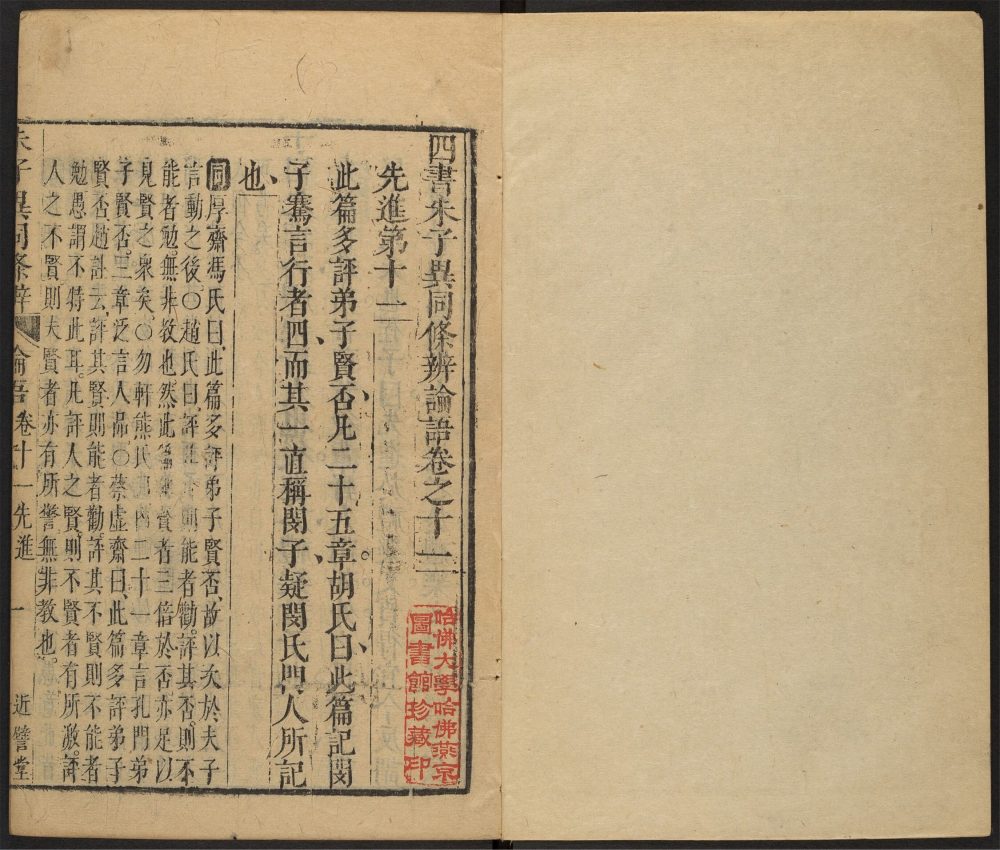 四書朱子異同條辨論語卷之十一
哈佛大學哈佛燕京
圖書館珍藏印
先進第十一
此篇多評弟子賢否凡二十五章胡氏曰此篇記閔
子騫言行者四而其一直稱閔子疑閔氏門人所記
也
同厚齋馮氏曰此篇多評弟子賢否故以次於夫子
言動之後○趙氏曰評其賢則能者勸評其否則不
能者勉無非教也然此篇賢者三倍於否亦足以
見賢之衆矣○勿軒熊氏曰内二十一章言孔門弟
子賢否三章泛言人品○蔡虛齋曰此篇多評弟子
賢否趙註云評其賢則能者勸評其不賢則不能者
勉愚謂不特此耳凡評人之賢則不賢者有所激評
人之不賢則夫賢者亦有所警無非教也
朱子異同條辨 論語卷十一先進 一 近譬堂